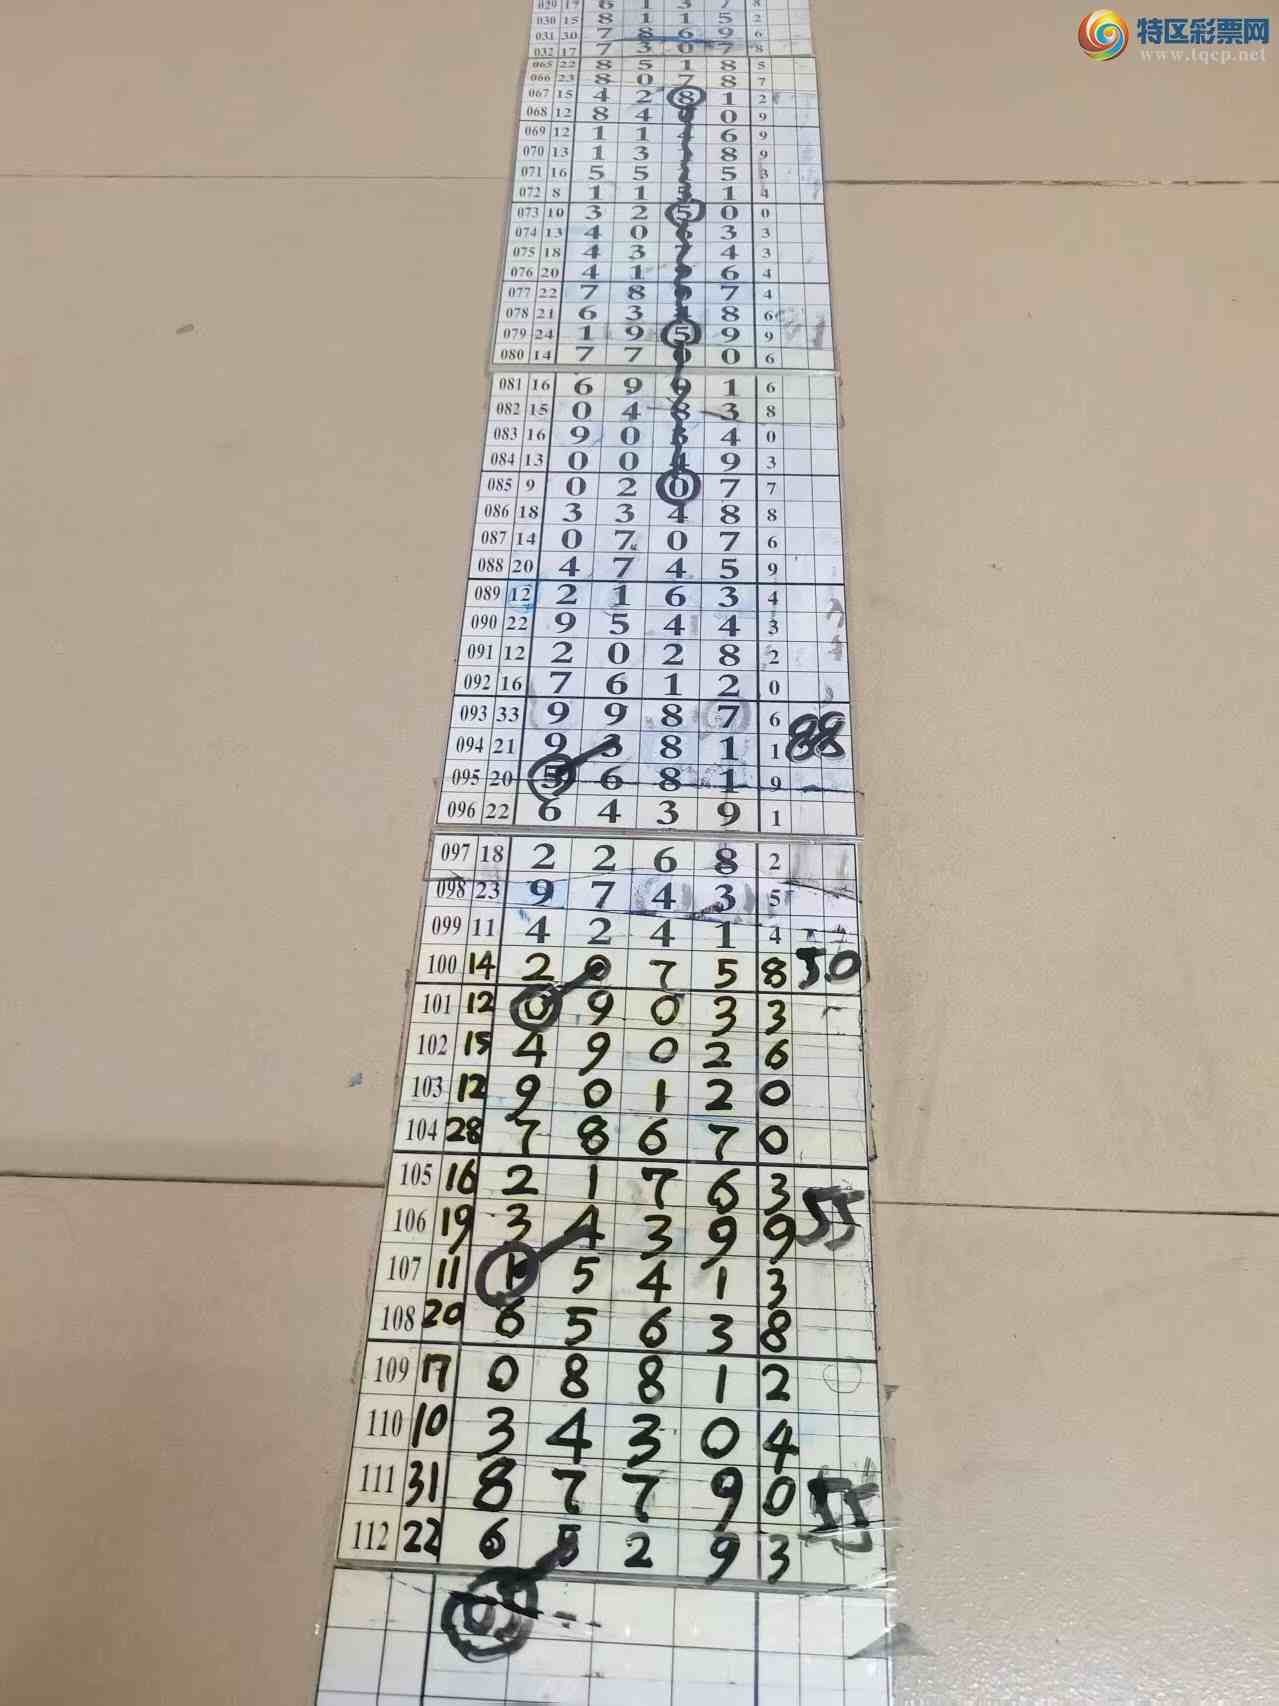 特区彩票网
www.tqcp.net
029 17 6 1 3 7 8
030 15 8 1 1 5 2
031 30 7 8 6 9 6
032 17 7 3 0 7 8
065 22 8 5 1 8 5
066 23 8 0 7 8 7
067 15 4 2 8 1 2
068 12 8 4 0 9
069 12 1 1 4 6 9
070 13 1 3 8 9
071 16 5 5 5 3
072 8 1 1 5 1 4
073 10 3 2 5 0 0
074 13 4 0 6 3 3
075 18 4 3 7 4 3
076 20 4 1 9 6 4
077 22 7 8 7 4
078 21 6 3 4 8 6
079 24 1 9 5 9 9
080 14 7 7 0 0 6
081 16 6 9 9 1 6
082 15 0 4 8 3 8
083 16 9 0 3 4 0
084 13 0 0 4 9 3
085 9 0 2 0 7 7
086 18 3 3 4 8 8
087 14 0 7 0 7 6
088 20 4 7 4 5 9
089 12 2 1 6 3 4
090 22 9 5 4 4 3
091 12 2 0 2 8 2
092 16 7 6 1 2 0
093 33 9 9 8 7 6
094 21 9 3 8 1 1 88
095 20 5 6 8 1 9
096 22 6 4 3 9 1
097 18 2 2 6 8 2
098 23 9 7 4 3 5
099 11 4 2 4 1 4
100 14 2 0 7 5 8 50
101 12 0 9 0 3 3
102 15 4 9 0 2 6
103 12 9 0 1 2 0
104 28 7 8 6 7 0
105 16 2 1 7 6 3
106 19 3 4 3 9 9 55
107 11 1 5 4 1 3
108 20 6 5 6 3 8
109 17 0 8 8 1 2
110 10 3 4 3 0 4
111 31 8 7 7 9 0 55
112 22 6 5 2 9 3